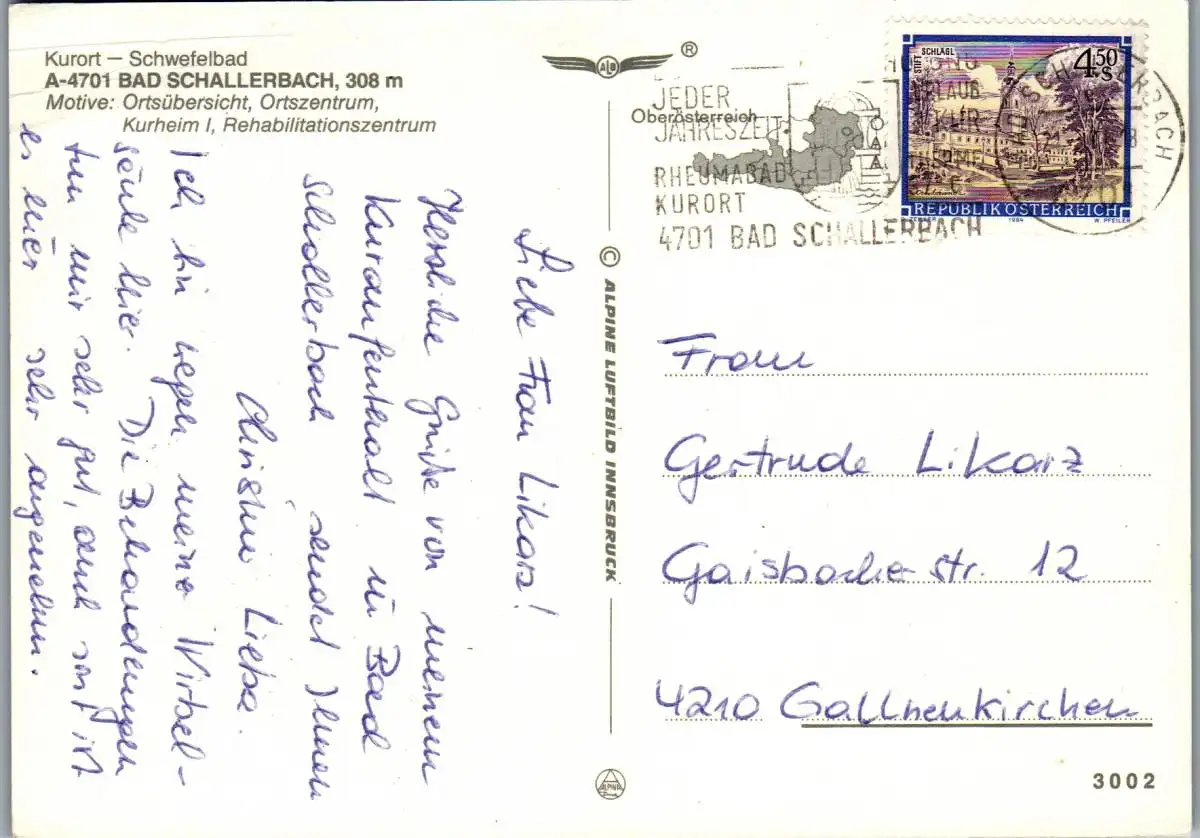 Kurort – Schwefelbad
A-4701 BAD SCHALLERBACH, 308 m
Motive: Ortsübersicht, Ortszentrum,
Kurheim I, Rehabilitationszentrum
Liebe Frau Likarz!
Herzliche Grüße von meinem
Kuraufenthalt in Bad
Schallerbach sendet Ihnen
Christine Liebsa.
Ich bin wegen meiner Wirbel-
säule hier. Die Behandlungen
tun mir sehr gut, auch sonst ist
es hier sehr angenehm.
ALB ®
Oberösterreich
© ALPINE LUFTBILD INNSBRUCK
ALPINE
JEDER
JAHRESZEIT
RHEUMABAD
KURORT
4701 BAD SCHALLERBACH
URLAUB
KUR
THERME
STIFT SCHLÄGL
4.50
S
REPUBLIK ÖSTERREICH
ZEILLER 1984 W. PFEILER
SCHALLERBACH
Frau
Gertrude Likarz
Gaisbacherstr. 12
4210 Gallneukirchen
3002